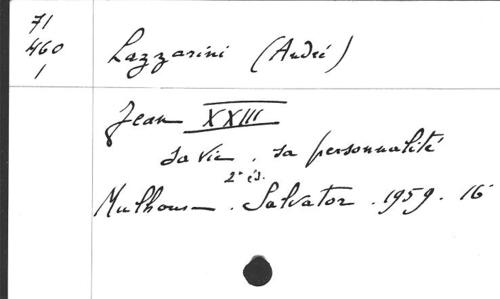 71
460
1
Lazzarini (André)
Jean XXIII
sa vie, sa personnalité
2e éd.
Mulhouse. Salvator. 1959. 16°